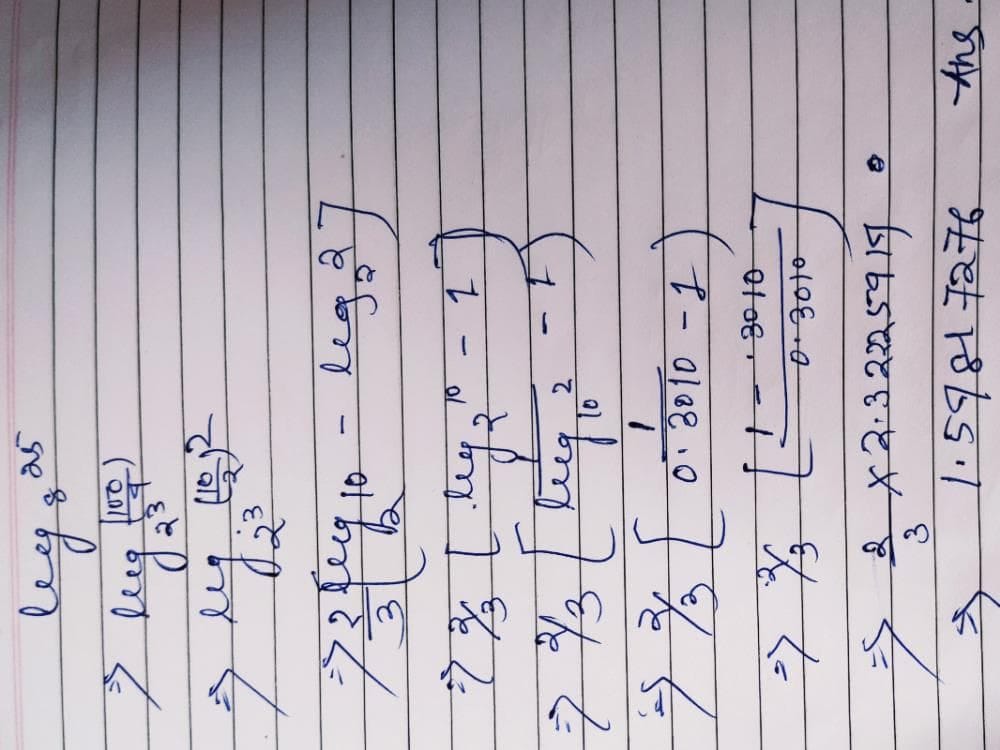 log₈ 25
⇒ log_{2³} (100/4)
⇒ log_{2³} (10/2)²
⇒ 2/3 [log₂ 10 - log₂ 2]
⇒ 2/3 [log₂ 10 - 1]
⇒ 2/3 [1/log₁₀ 2 - 1)
⇒ 2/3 [1/0.3010 - 1)
⇒ 2/3 [1 - .3010/0.3010]
⇒ 2/3 × 2.32225915
⇒ 1.59817276 Ans.